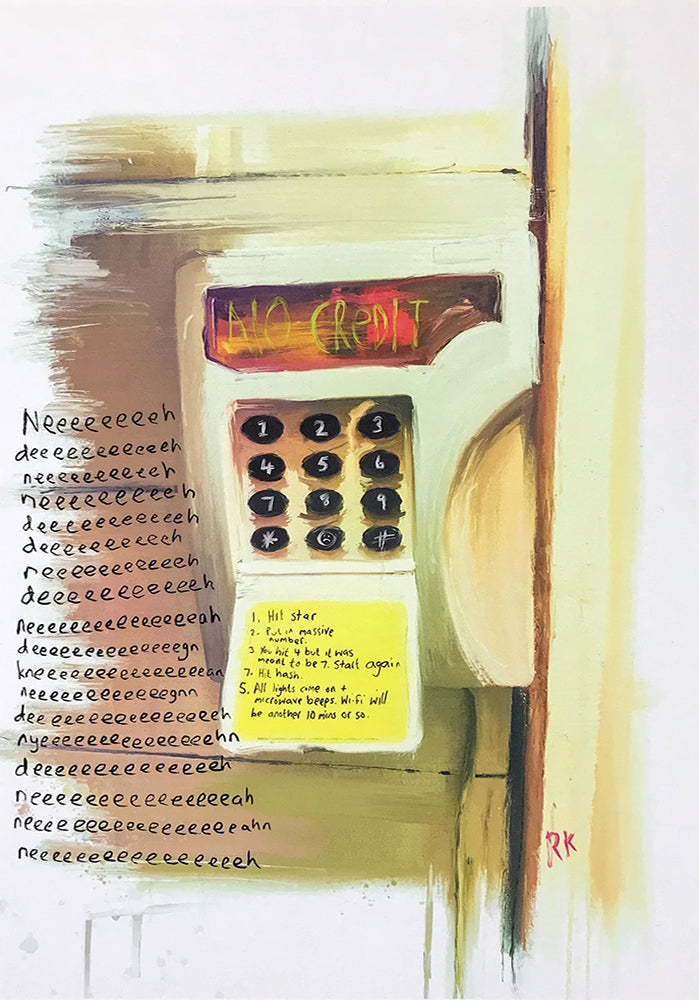 NO CREDIT
Neeeeeeeeh
deeeeeeeeeeh
neeeeeeeeeeh
neeeeeeeeeh
deeeeeeeeeh
deeeeeeeeh
neeeeeeeeeh
deeeeeeeeeeeh
neeeeeeeeeeeeeeah
deeeeeeeeeeeegn
kneeeeeeeeeeeeean
neeeeeeeeeeegnn
deeeeeeeeeeeeeeh
nyeeeeeeeeeeeeeehn
deeeeeeeeeeeeeeh
neeeeeeeeeeeeeeeah
neeeeeeeeeeeeeeeeahn
neeeeeeeeeeeeeeeeeh
1 2 3
4 5 6
7 8 9
* ☹ #
1. Hit star
2. Put in massive
number.
3. You hit 4 but it was
meant to be 7. Start again
7. Hit hash.
5. All lights come on +
microwave beeps. Wi-Fi will
be another 10 mins or so.
RK